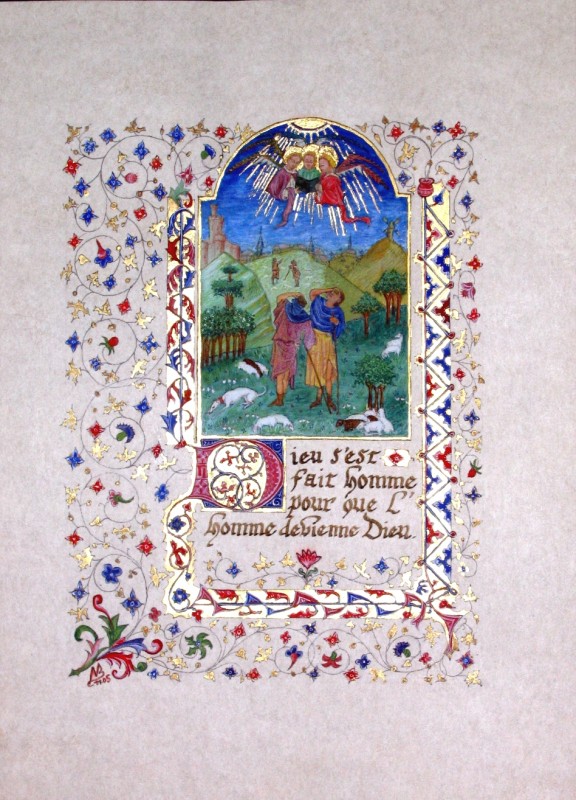 Dieu s'est
fait homme
pour que L'
homme devienne Dieu.